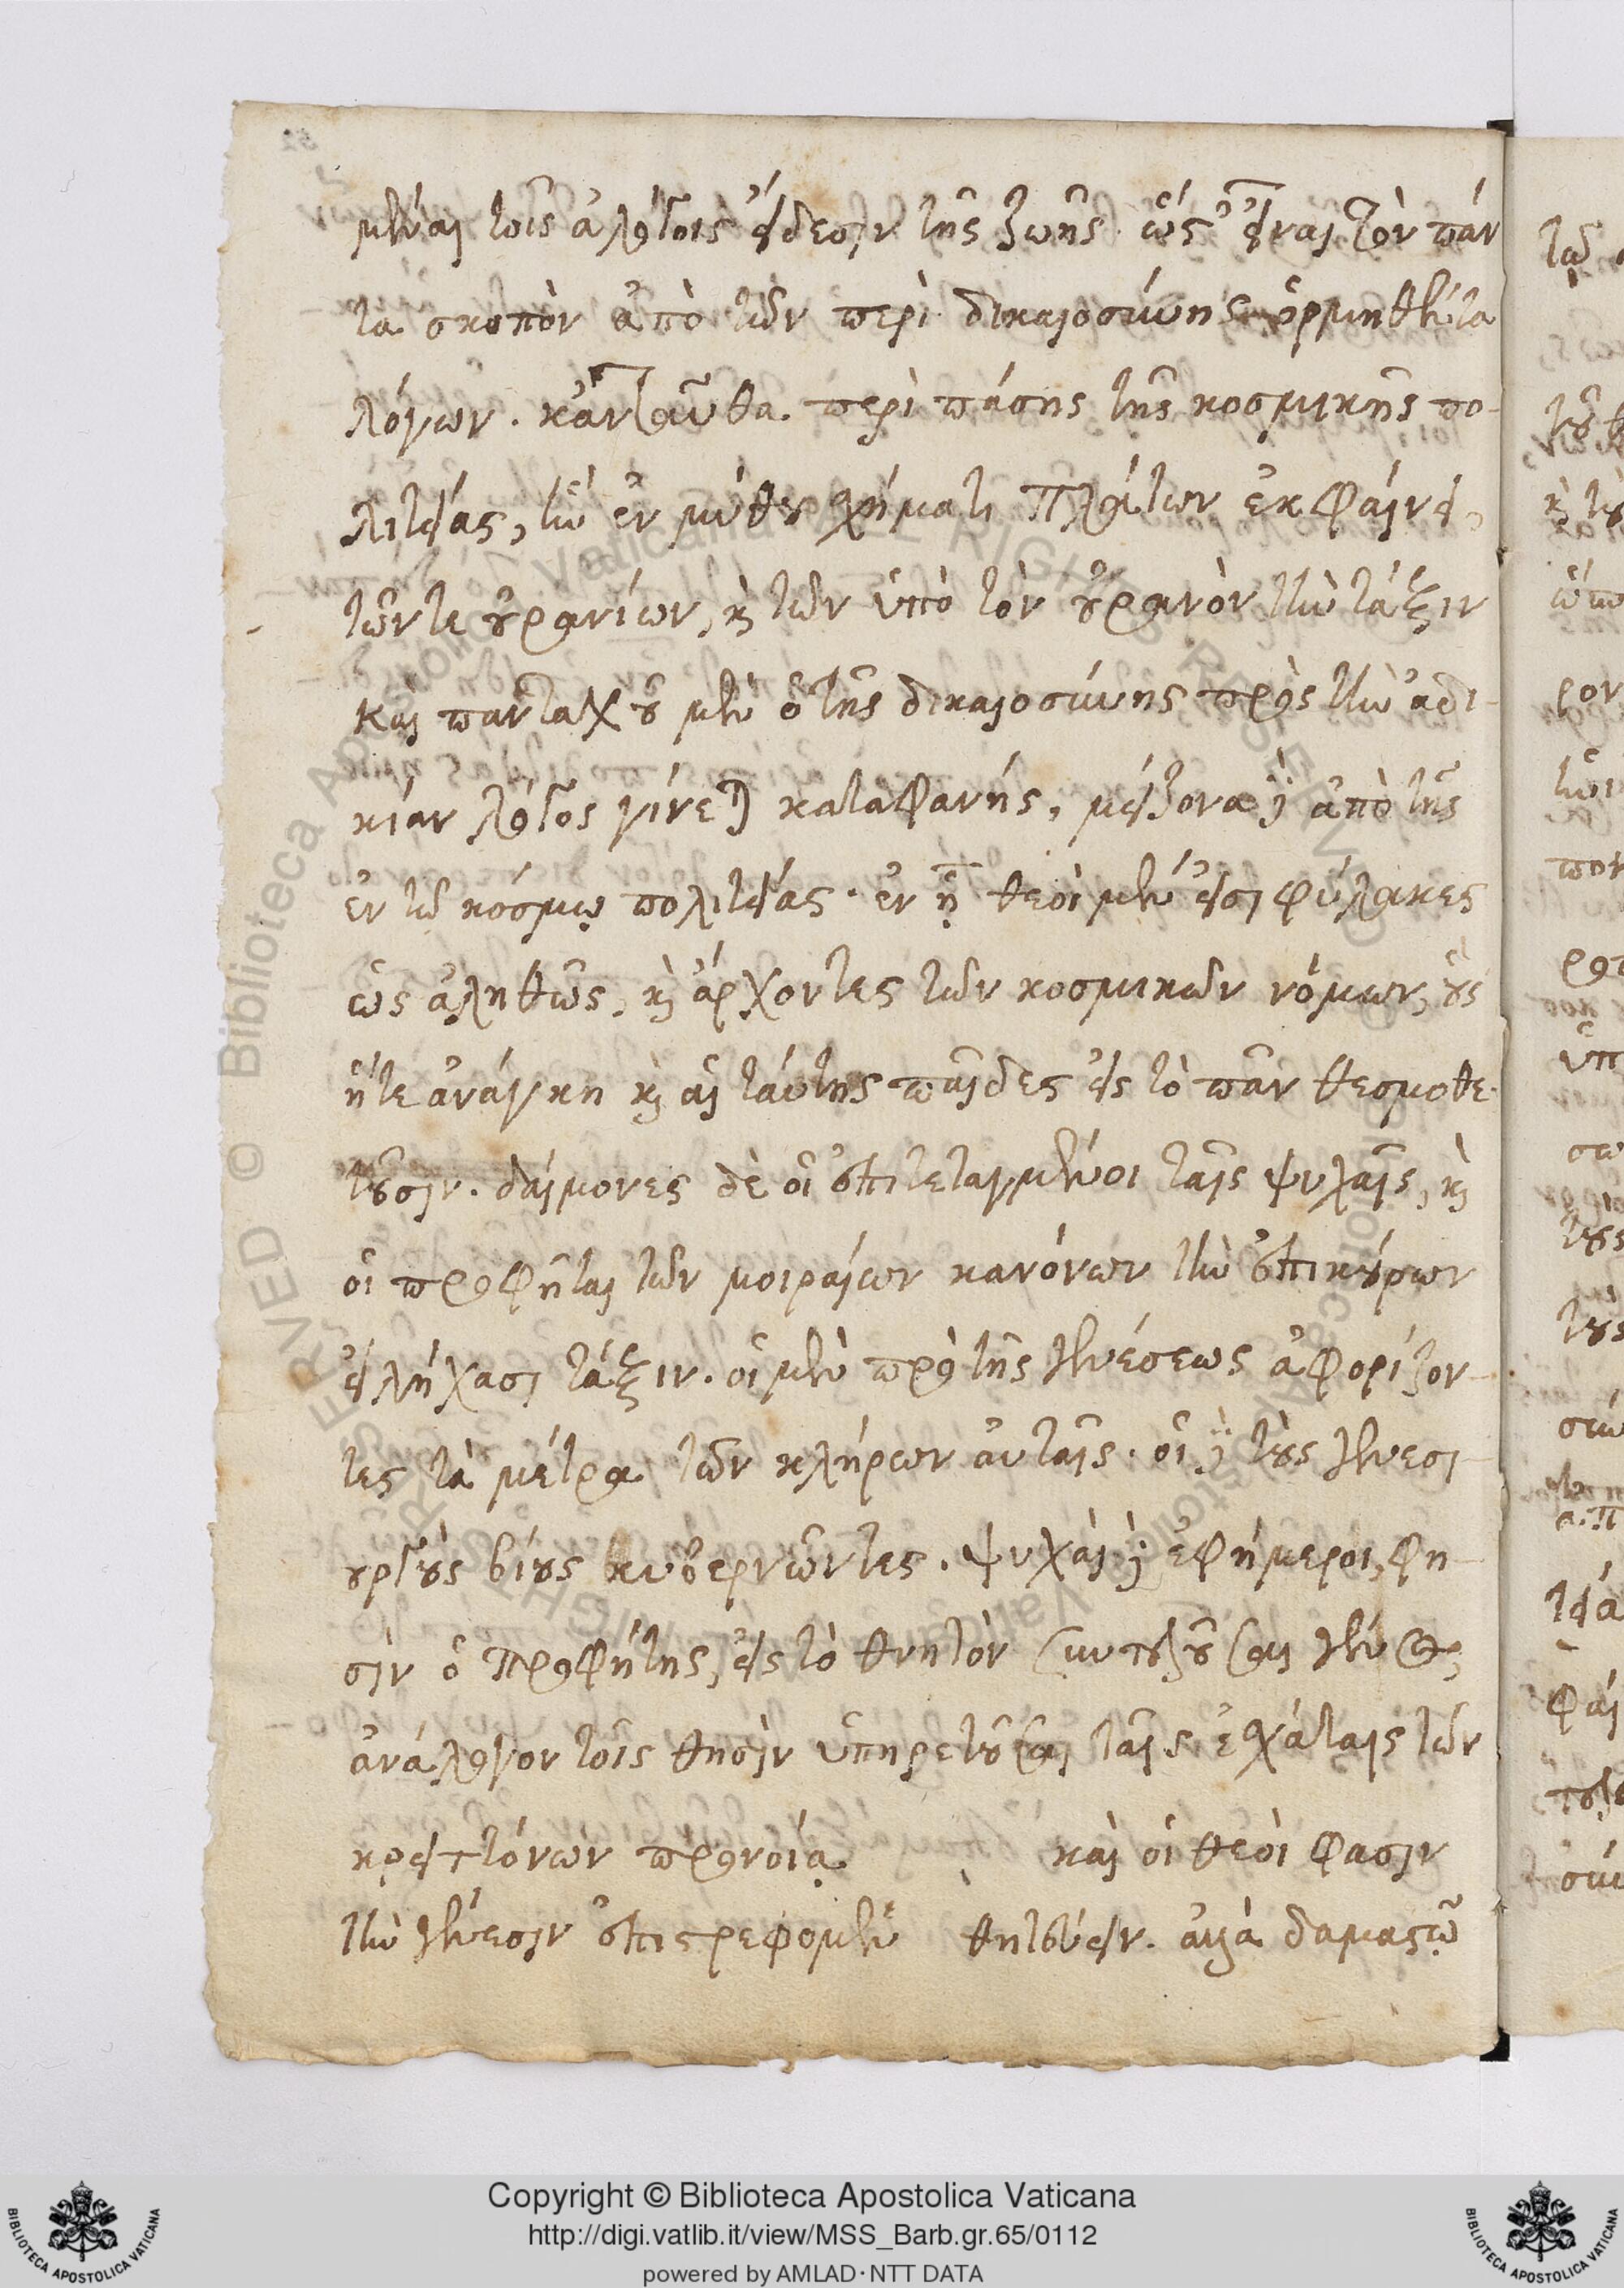 μέναι τοῖς ἀλόγοις εἴδεσιν τῆς ζωῆς. ὥς εἶναι τὸν πάν
τα σκοπὸν ἀπὸ τῶν περὶ δικαιοσύνης ὁρμηθέντα
λόγων. κἀνταῦθα περὶ πάσης τῆς κοσμικῆς πο-
λιτείας, τῷ ἐν μύθου σχήματι Πλάτων ἐκφαίνει,
τῶν τε οὐρανίων, καὶ τῶν ὑπὸ τὸν οὐρανὸν τὴν τάξιν
καὶ πανταχοῦ μὲν ὁ τῆς δικαιοσύνης πρὸς τὴν ἀδι-
κίαν λόγος γίνεται καταφανής, μείζονα δὲ ἀπὸ τῆς
ἐν τῷ κόσμῳ πολιτείας. ἐν ᾗ θεοὶ μὲν εἰσι φύλακες
ὡς ἀληθῶς, καὶ ἄρχοντες τῶν κοσμικῶν νόμων, οὓς
ἥ τε ἀνάγκη καὶ αἱ ταύτης παῖδες εἰς τὸ πᾶν θεσμοθε-
τοῦσιν. δαίμονες δὲ οἱ ἐπιτεταγμένοι ταῖς ψυχαῖς, καὶ
οἱ προφῆται τῶν μοιραίων κανόνων τὴν ἐπικούρων
εἰλήχασι τάξιν. οἱ μὲν πρὸ τῆς γενέσεως ἀφορίζον-
τες τὰ μέτρα τῶν κλήρων αὐταῖς. οἱ δὲ τοὺς γενεσι-
ουργοὺς βίους κυβερνῶντες. ψυχαὶ δὲ ἐφήμεροι, φη-
σὶν ὁ προφήτης, εἰς τὸ θνητὸν συντελοῦσαι γένος,
ἀνάλογον τοῖς θησὶν ὑπηρετοῦσαι ταῖς ἐσχάταις τῶν
κρειττόνων προνοίᾳ καὶ οἱ θεοί φασιν
τὴν γένεσιν ἐπιστρεφομέν θητεύειν. ἀλλὰ δαμαστῷ